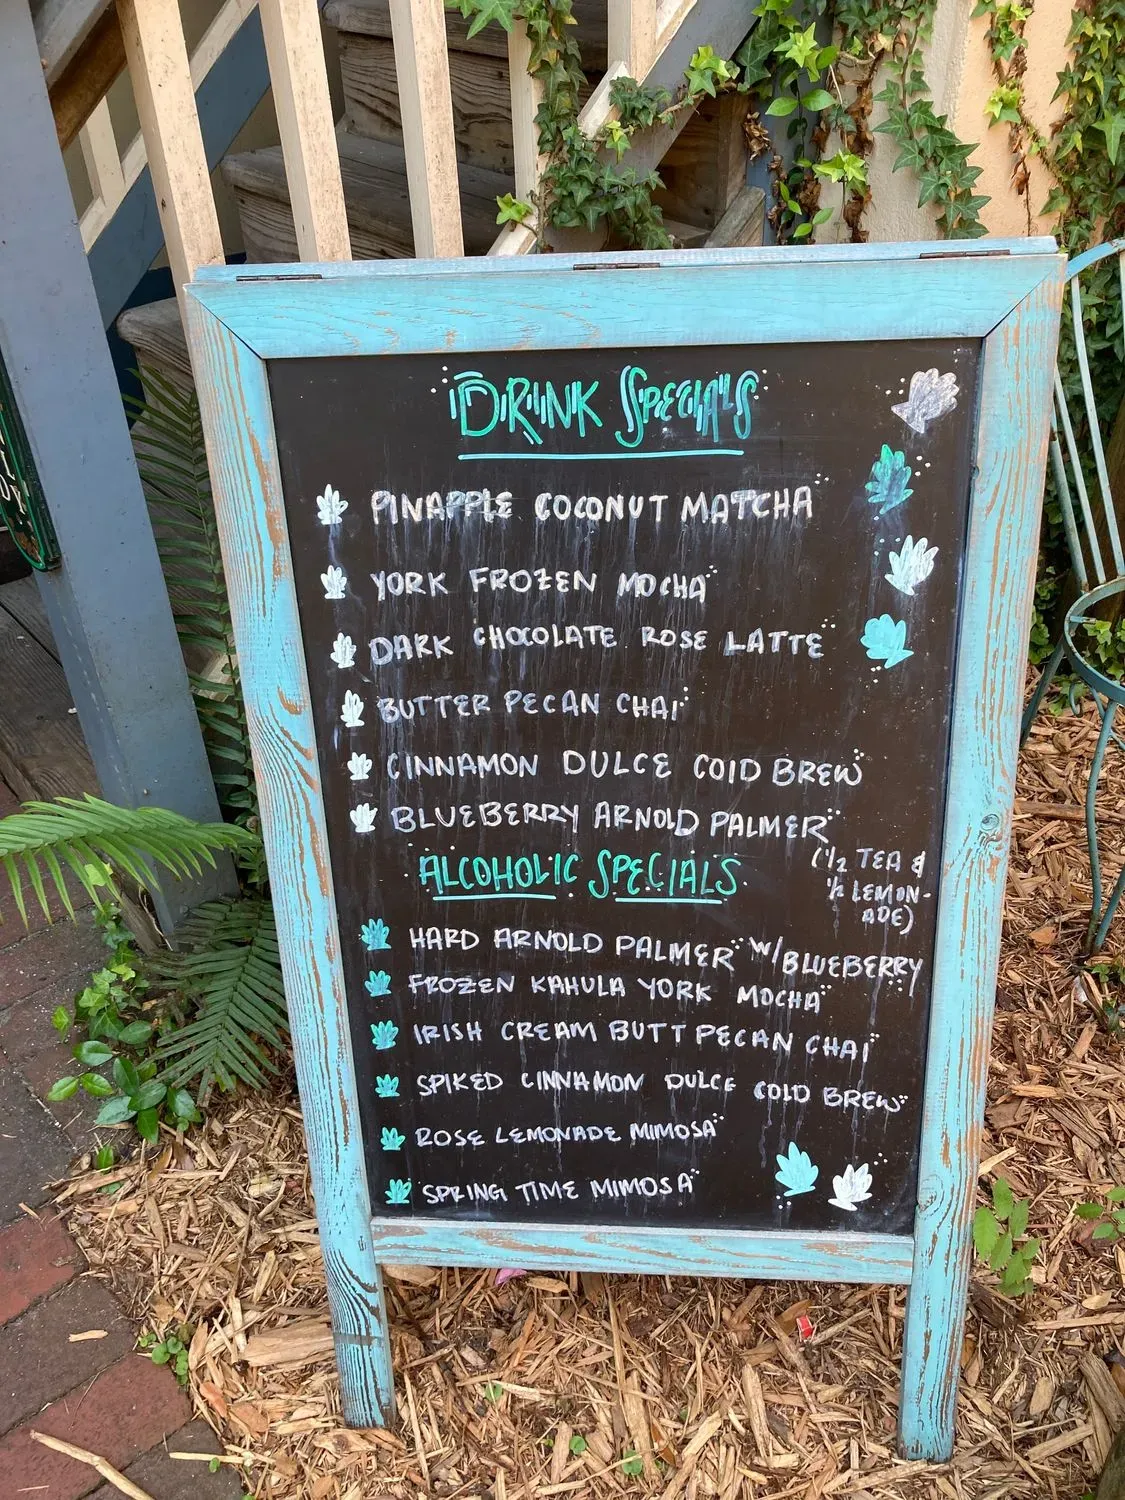 DRINK SPECIALS
PINAPPLE COCONUT MATCHA
YORK FROZEN MOCHA
DARK CHOCOLATE ROSE LATTE
BUTTER PECAN CHAI
CINNAMON DULCE COLD BREW
BLUEBERRY ARNOLD PALMER
(1/2 TEA &
1/2 LEMON-
ADE)
ALCOHOLIC SPECIALS
HARD ARNOLD PALMER W/BLUEBERRY
FROZEN KAHULA YORK MOCHA
IRISH CREAM BUTT PECAN CHAI
SPIKED CINNAMON DULCE COLD BREW
ROSE LEMONADE MIMOSA
SPRING TIME MIMOSA